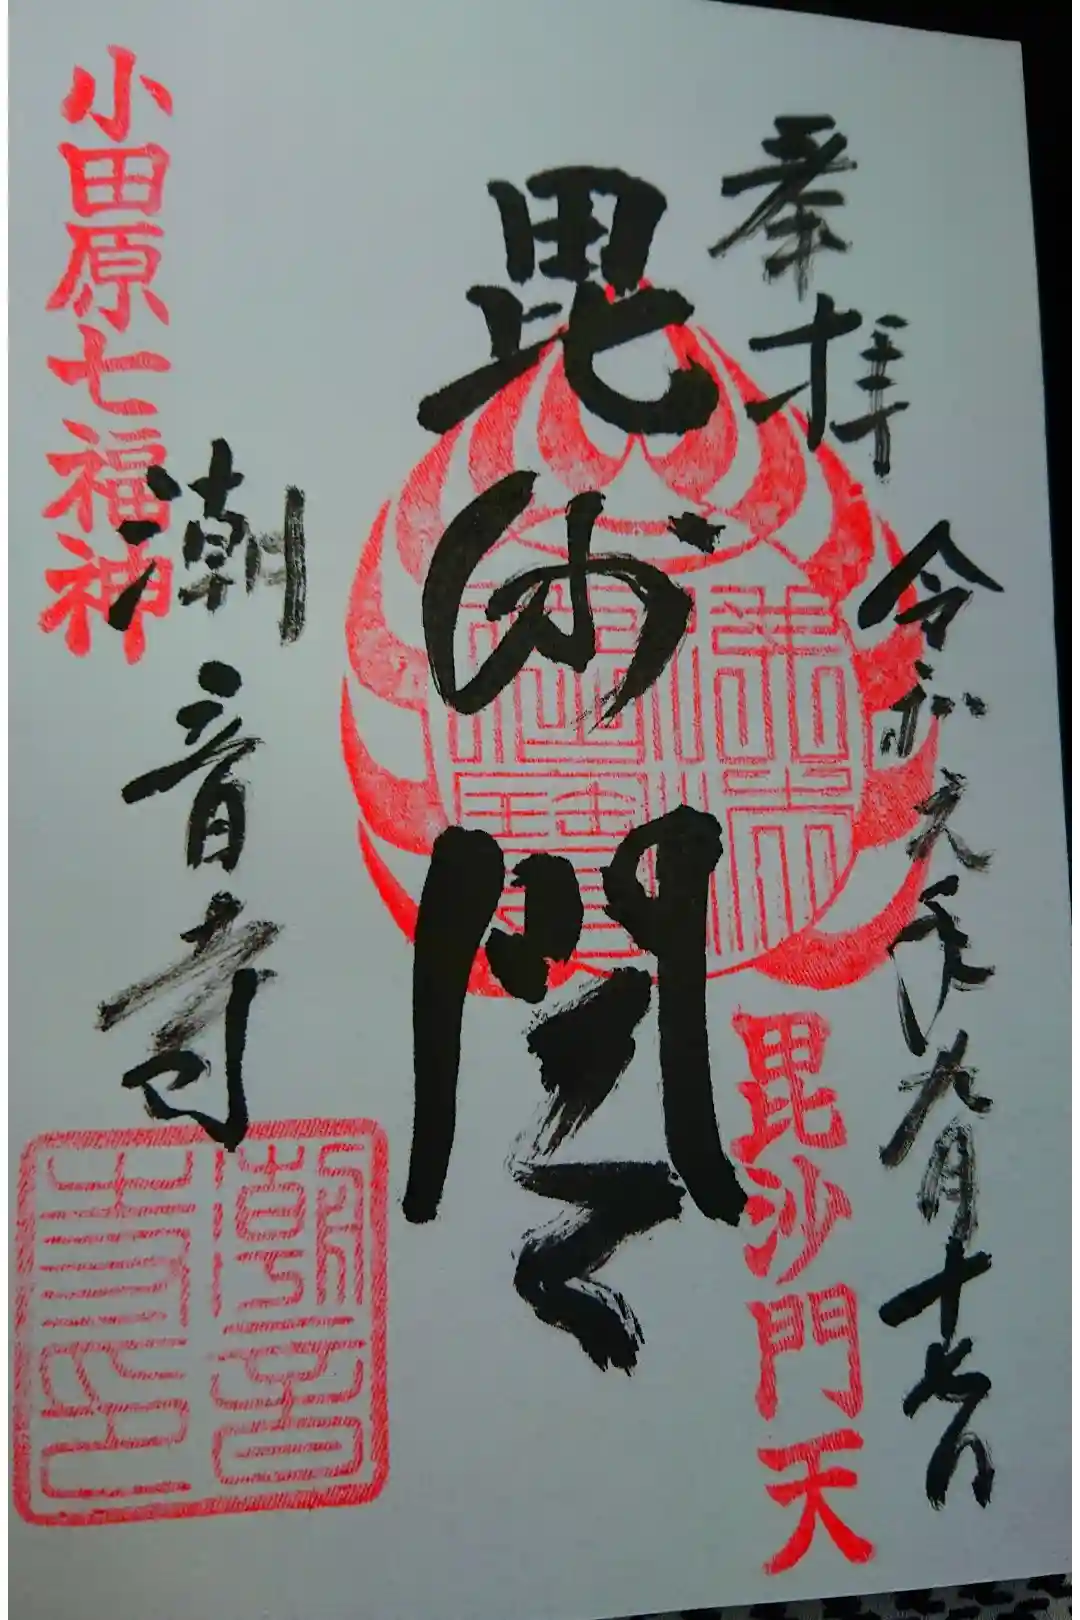 奉拝
令和元年九月十七日
毘沙門天
毘沙門天
潮音寺
小田原七福神
潮音寺印